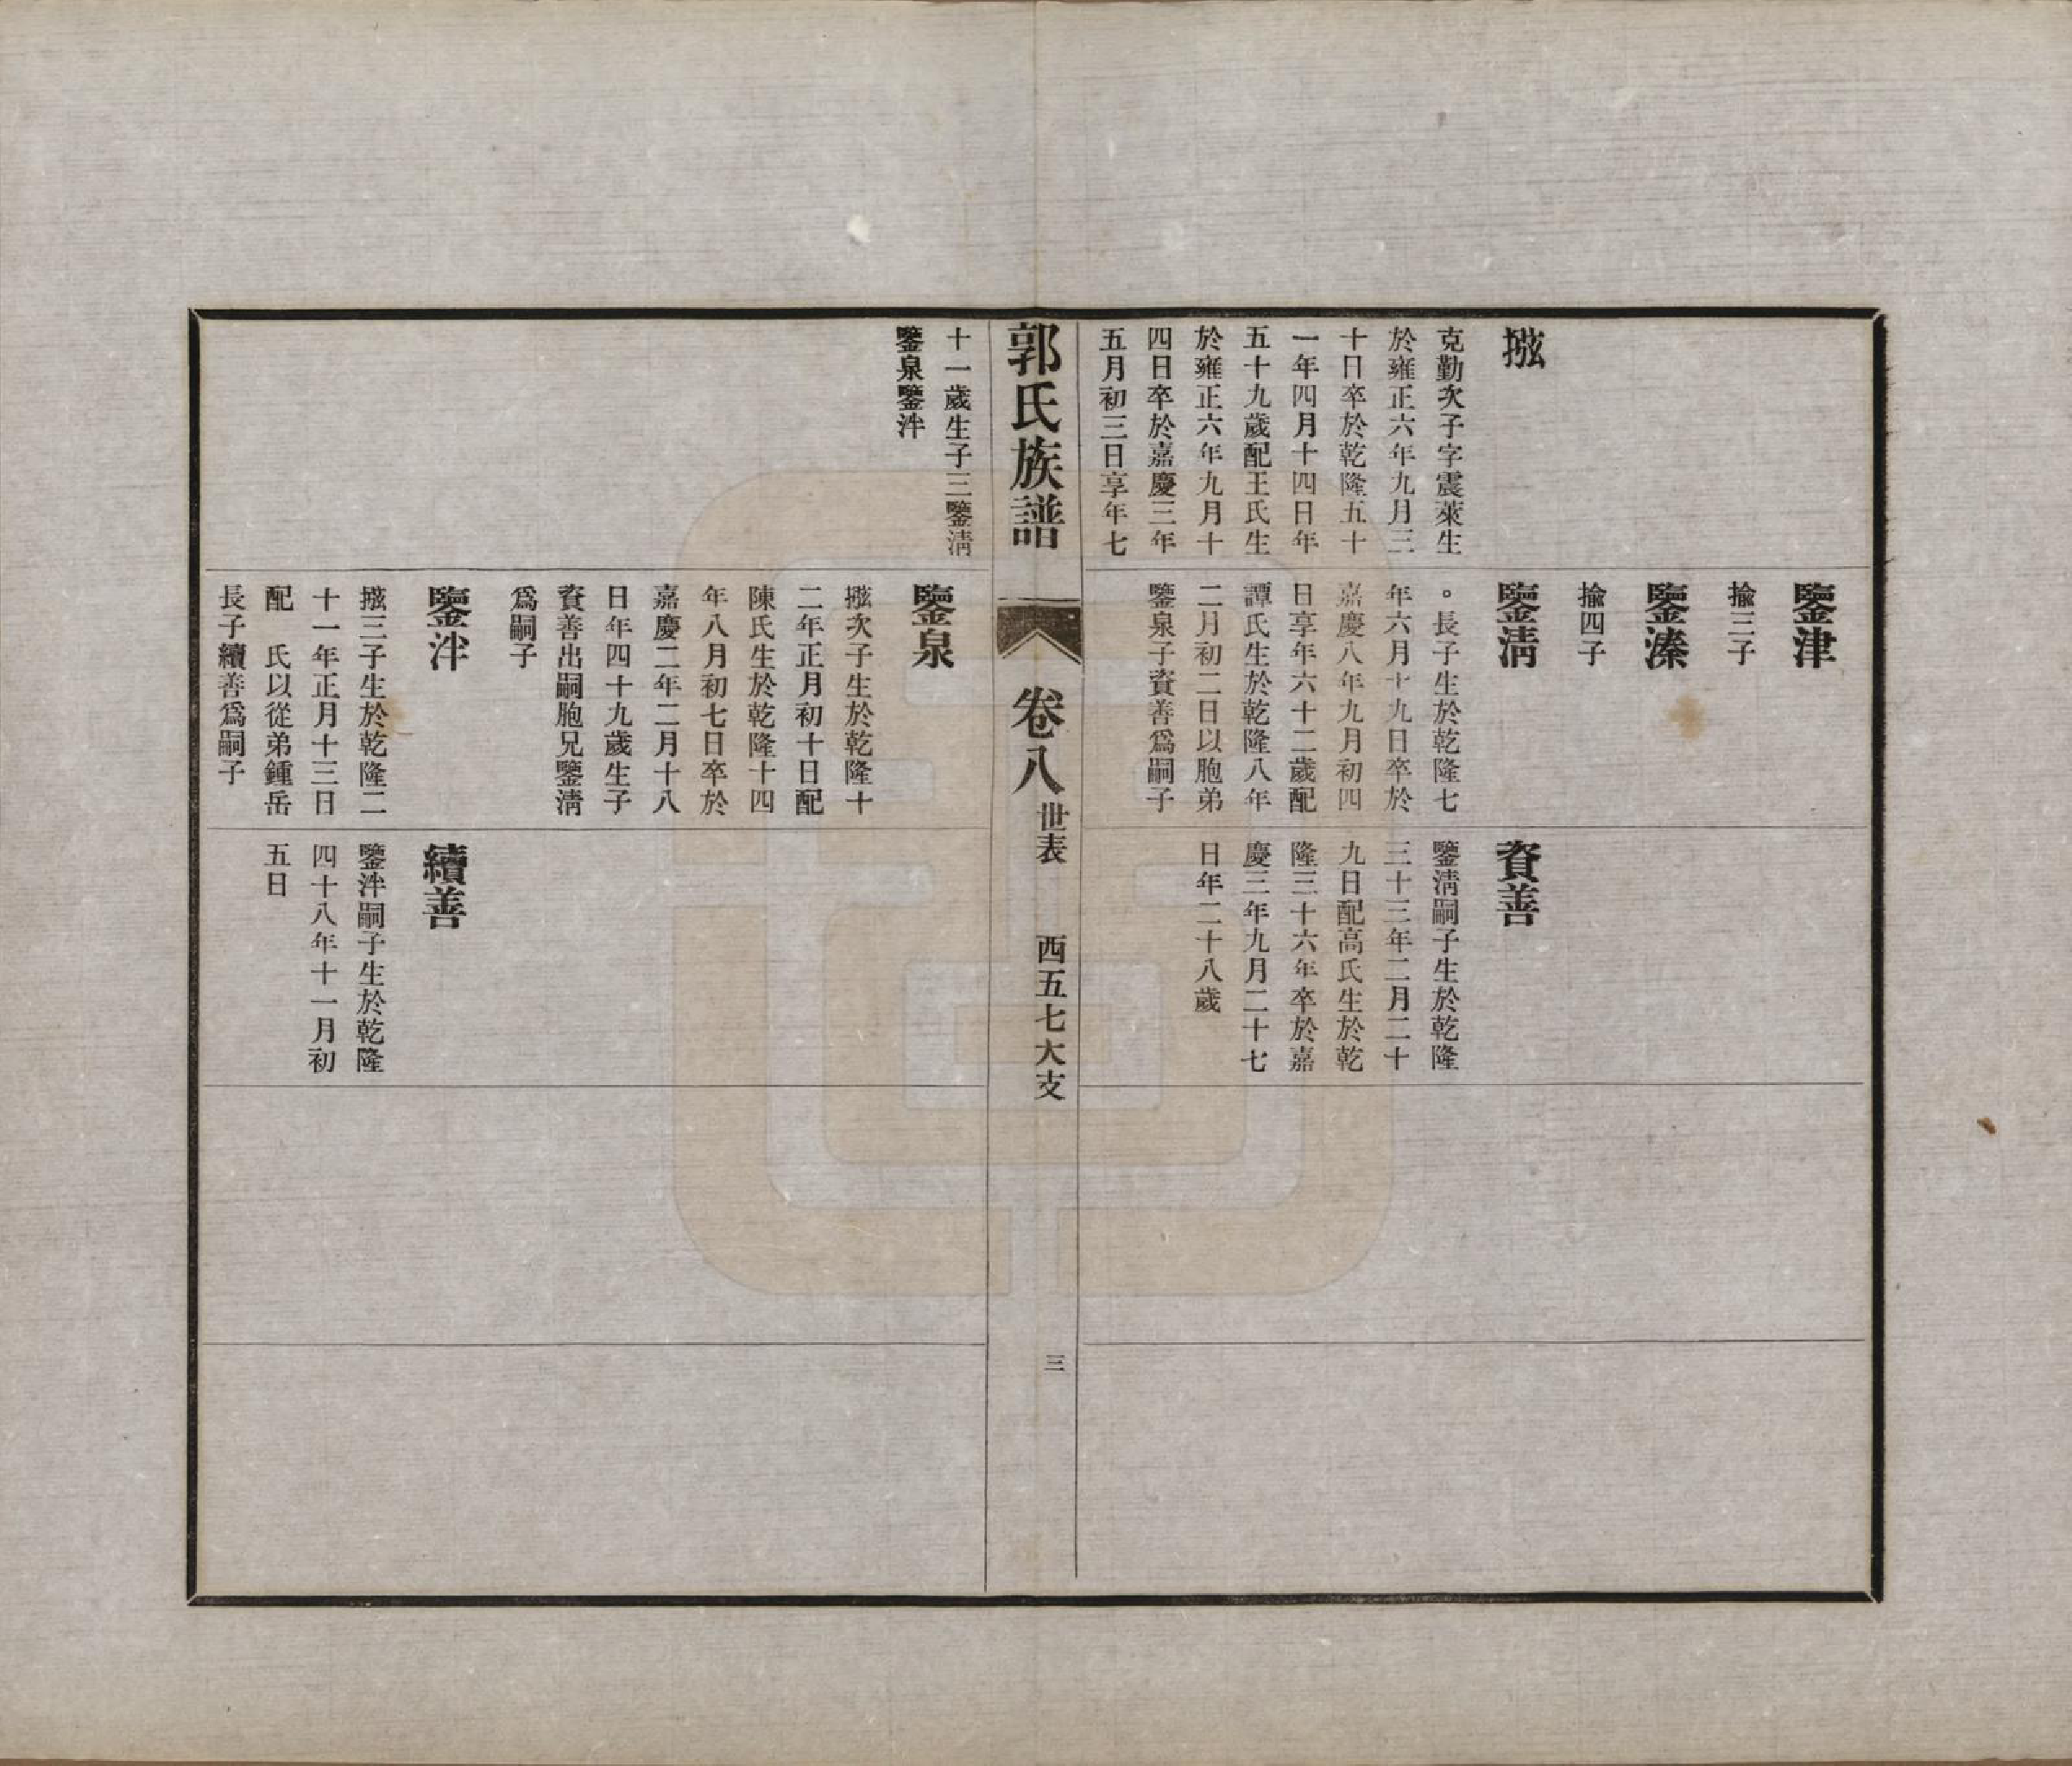 摋
克勤次子字震萊生
於雍正六年九月三
十日卒於乾隆五十
一年四月十四日年
五十九歲配王氏生
於雍正六年九月十
四日卒於嘉慶三年
五月初三日享年七
鑒津
揄三子
鑒溱
揄四子
鑒淸
。長子生於乾隆七
年六月十九日卒於
嘉慶八年九月初四
日享年六十二歲配
譚氏生於乾隆八年
二月初二日以胞弟
鑒泉子資善爲嗣子
資善
鑒淸嗣子生於乾隆
三十三年二月二十
九日配高氏生於乾
隆三十六年卒於嘉
慶三年九月二十七
日年二十八歲
郭氏族譜
卷八
世表
西五七大支
三
十一歲生子三鑒淸
鑒泉鑒泮
鑒泉
次子生於乾隆十
二年正月初十日配
陳氏生於乾隆十四
年八月初七日卒於
嘉慶二年二月十八
日年四十九歲生子
資善出嗣胞兄鑒淸
爲嗣子
鑒泮
三子生於乾隆二
十一年正月十三日
配　氏以從弟鍾岳
長子續善爲嗣子
續善
鑒泮嗣子生於乾隆
四十八年十一月初
五日